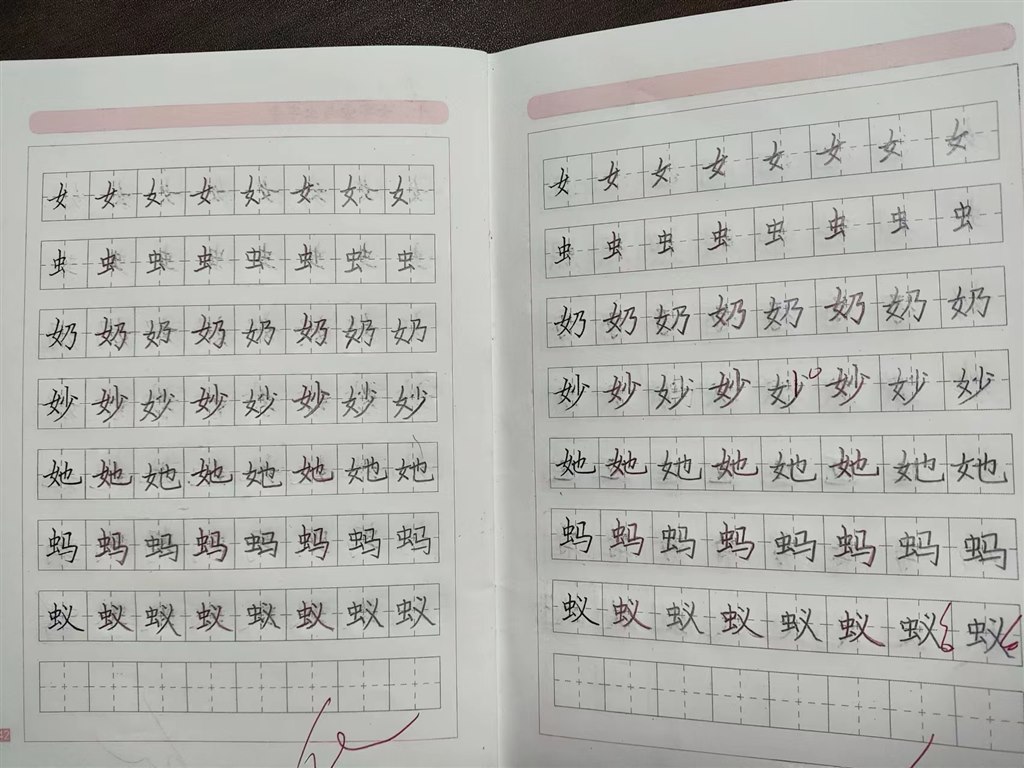 女女女女女女女女
虫虫虫虫虫虫虫虫
奶奶奶奶奶奶奶奶
妙妙妙妙妙妙妙妙
她她她她她她她她
蚂蚂蚂蚂蚂蚂蚂蚂
蚁蚁蚁蚁蚁蚁蚁蚁
女女女女女女女女
虫虫虫虫虫虫虫虫
奶奶奶奶奶奶奶奶
妙妙妙妙妙妙妙妙
她她她她她她她她
蚂蚂蚂蚂蚂蚂蚂蚂
蚁蚁蚁蚁蚁蚁蚁蚁